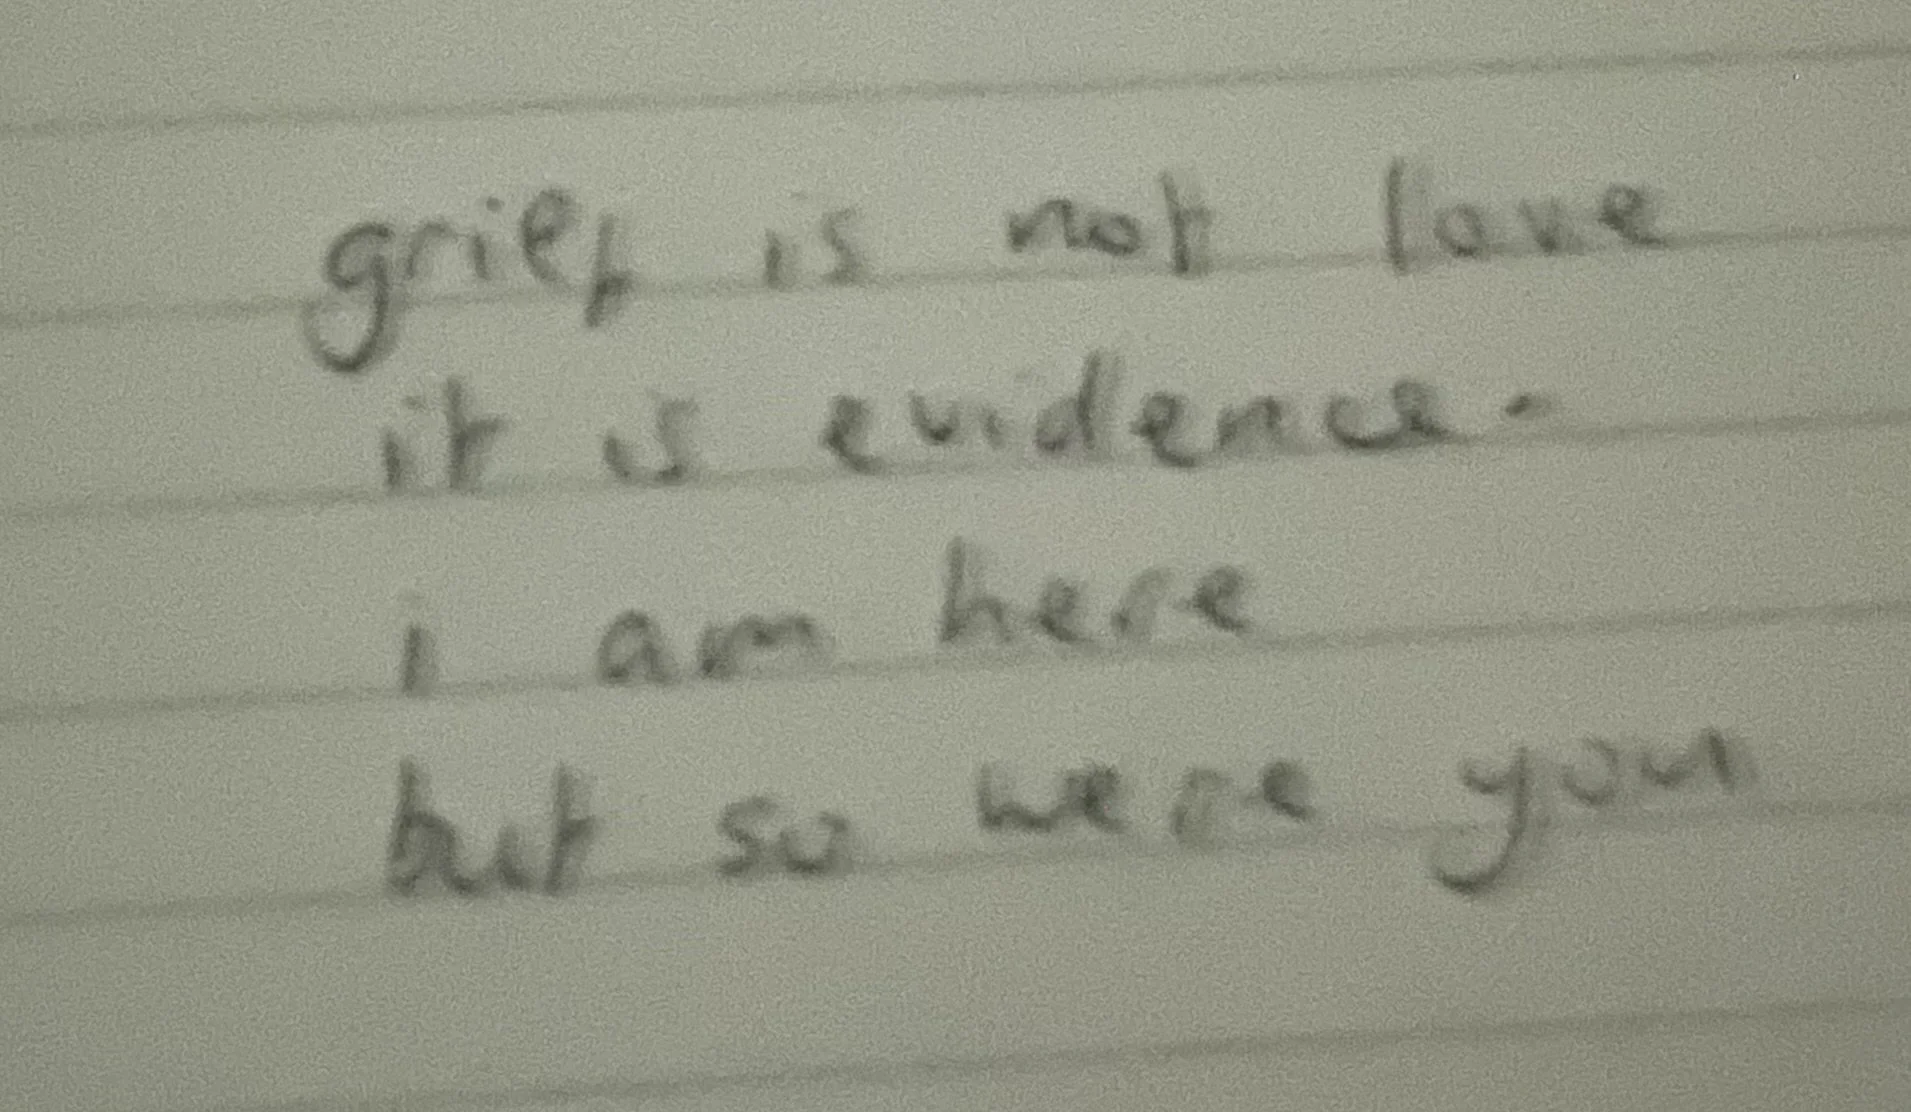 grief is not love
it is evidence.
i am here
but so were you